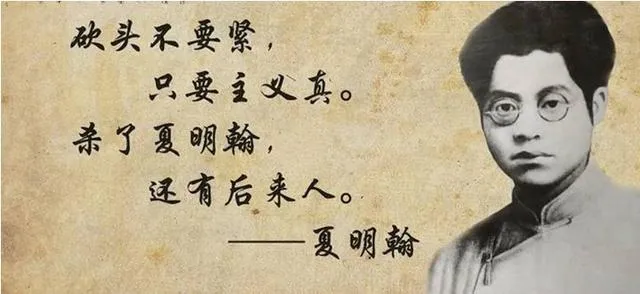 砍头不要紧，
只要主义真。
杀了夏明翰，
还有后来人。
——夏明翰